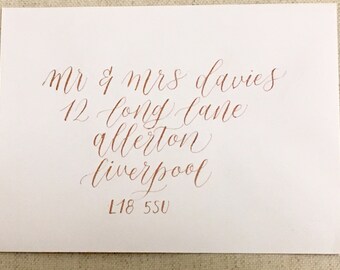 mr & mrs davies
12 long lane
allerton
liverpool
L18 5SU